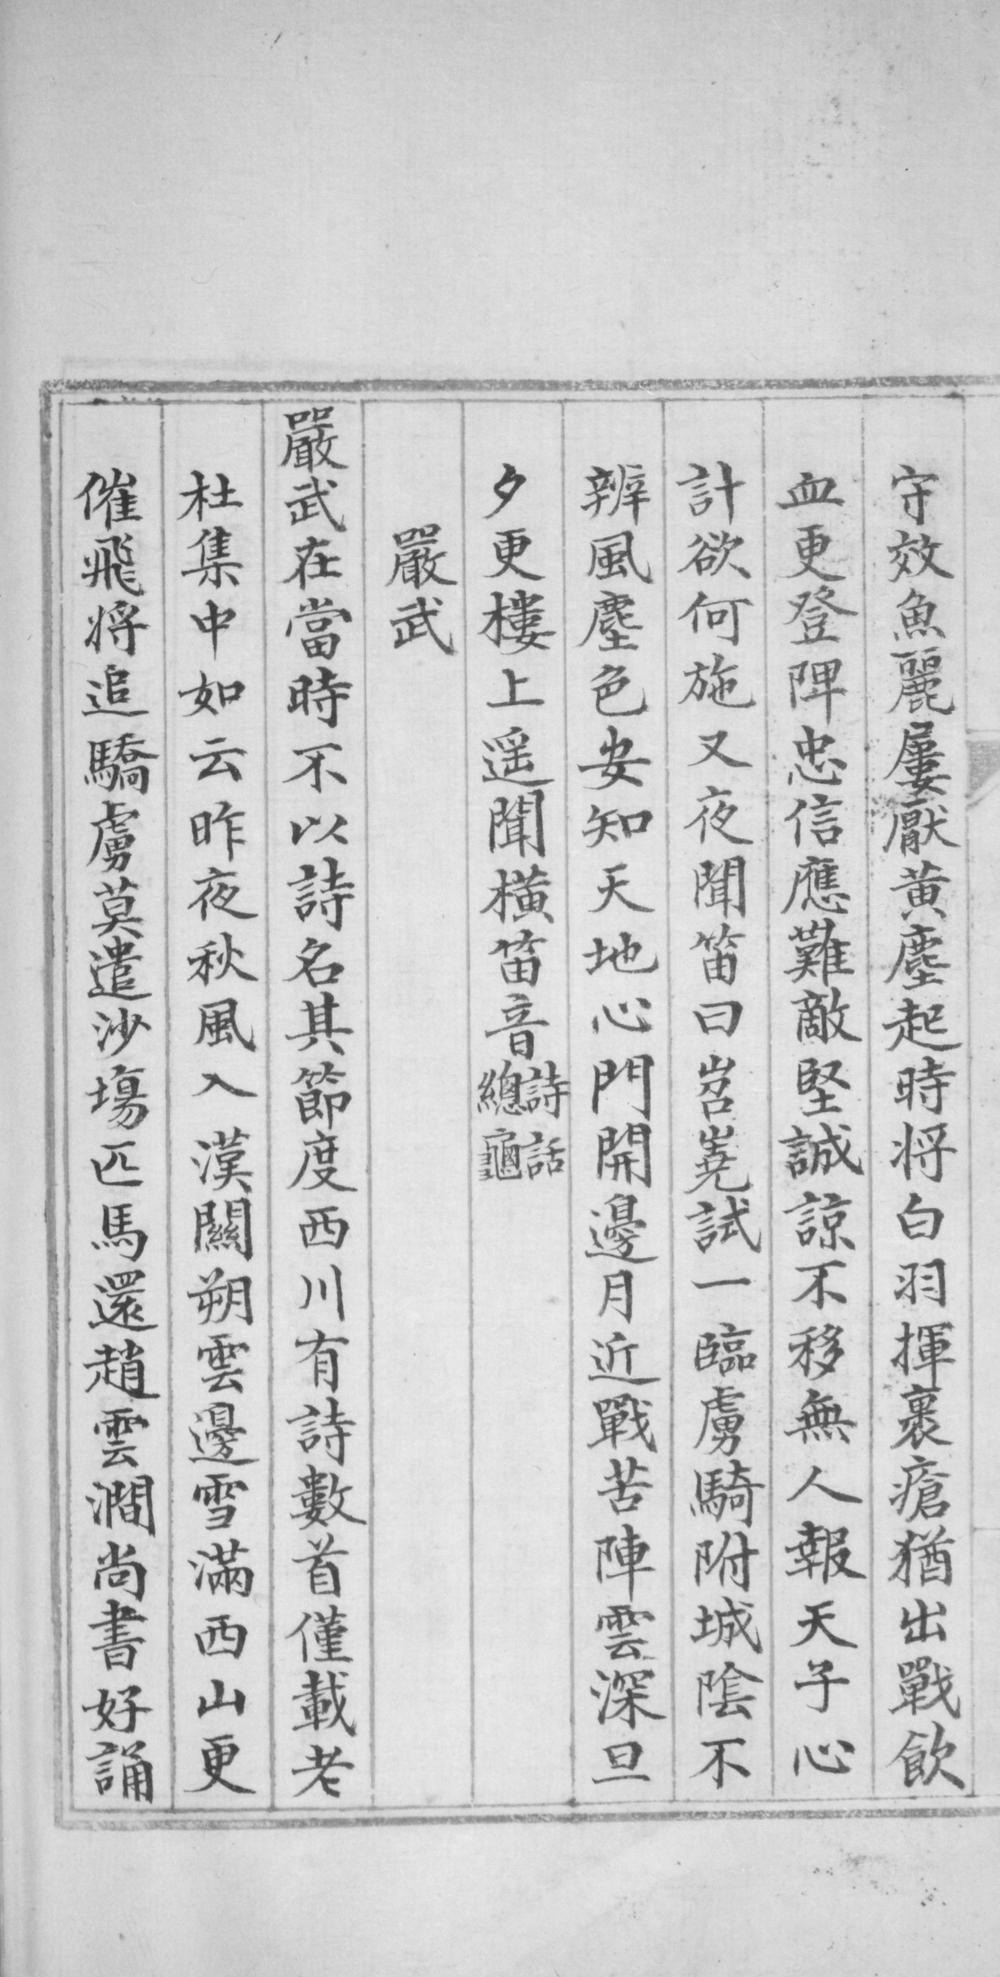 守效魚麗屢厭黃塵起時将白羽揮裹瘡猶出戰飲
血更登陴忠信應難敵堅誠諒不移無人報天子心
計欲何施又夜聞笛曰岧嶤試一臨虜騎附城陰不
辨風塵色安知天地心門開邊月近戰苦陣雲深旦
夕更樓上遥聞橫笛音詩話總龜
嚴武
嚴武在當時不以詩名其節度西川有詩數首僅載老
杜集中如云昨夜秋風入漢關朔雲邊雪滿西山更
催飛将追驕虜莫遣沙塲匹馬還趙雲澗尚書好誦